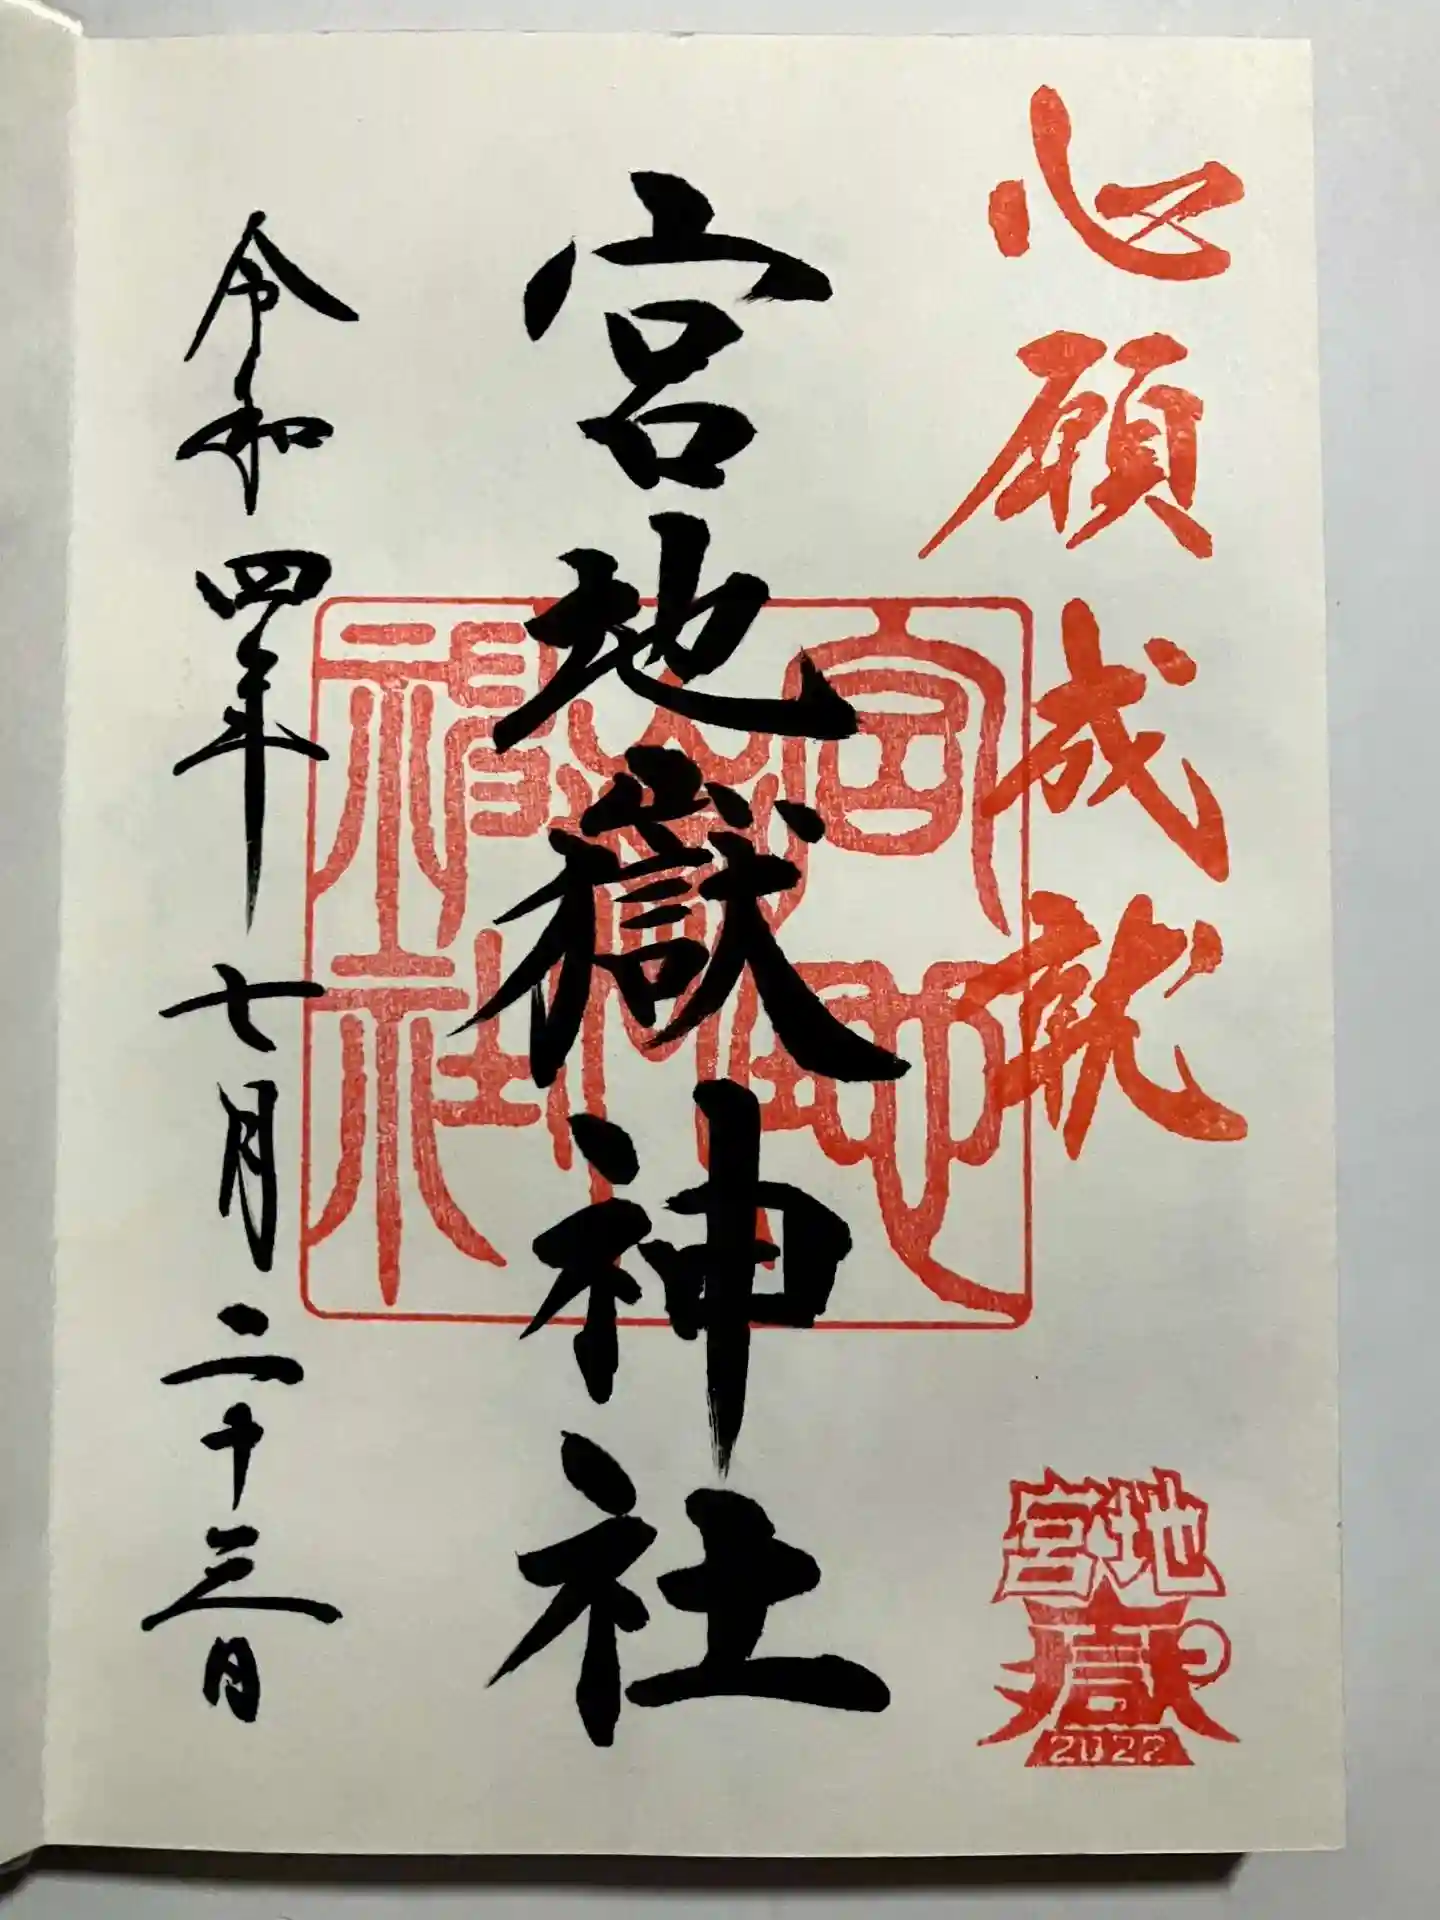 心願成就
宮地嶽神社
令和四年七月二十三日
宮地嶽神社
宮地
嶽
2022